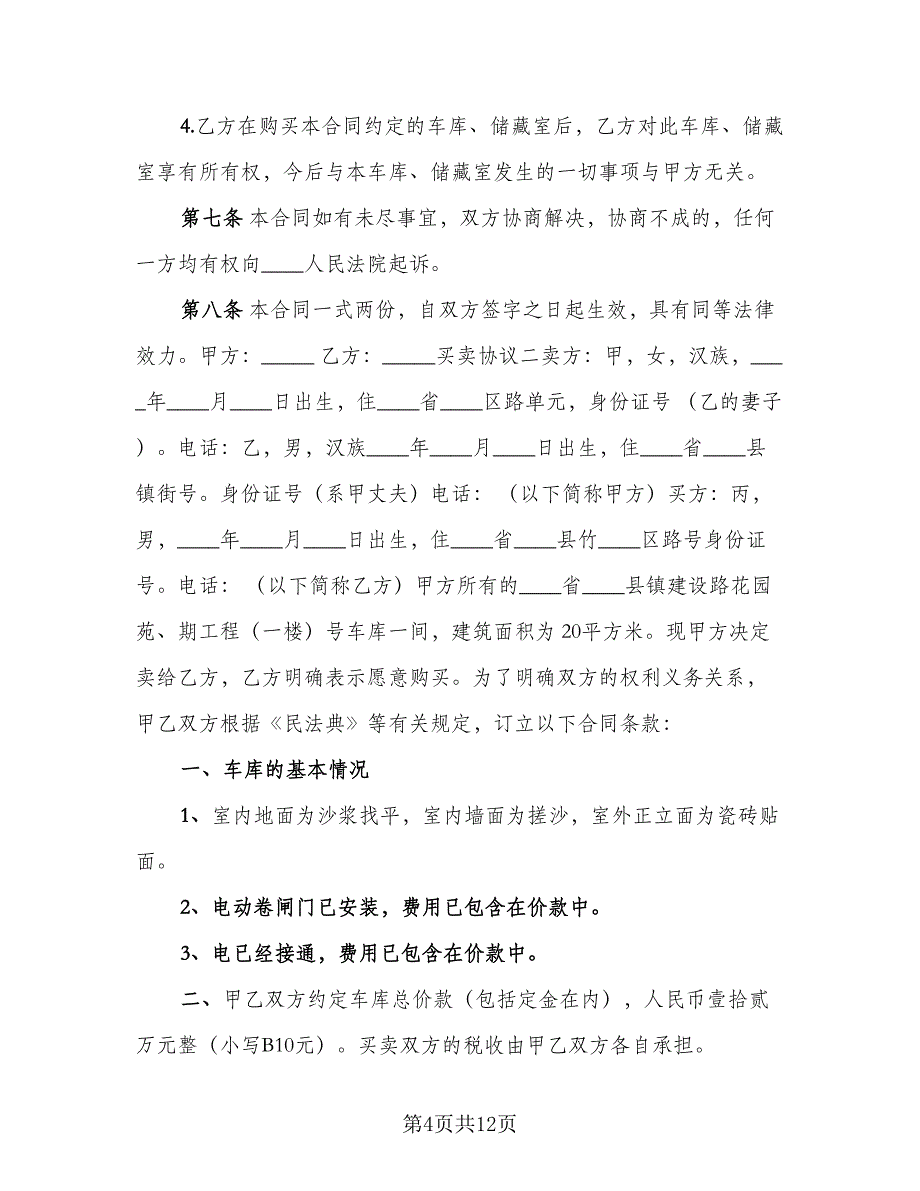 4.乙方在购买本合同约定的车库、储藏室后，乙方对此车库、储藏
室享有所有权，今后与本车库、储藏室发生的一切事项与甲方无关。
第七条 本合同如有未尽事宜，双方协商解决，协商不成的，任何
一方均有权向____人民法院起诉。
第八条 本合同一式两份，自双方签字之日起生效，具有同等法律
效力。甲方：_____ 乙方：_____买卖协议二卖方：甲，女，汉族，___
_年____月____日出生，住____省____区路单元，身份证号 （乙的妻子
）。电话：乙，男，汉族____年____月____日出生，住____省____县
镇街号。身份证号（系甲丈夫）电话： （以下简称甲方）买方：丙，
男，____年____月____日出生，住____省____县竹____区路号身份证
号。电话： （以下简称乙方）甲方所有的____省____县镇建设路花园
苑、期工程（一楼）号车库一间，建筑面积为 20平方米。现甲方决定
卖给乙方，乙方明确表示愿意购买。为了明确双方的权利义务关系，
甲乙双方根据《民法典》等有关规定，订立以下合同条款：
一、车库的基本情况
1、室内地面为沙浆找平，室内墙面为搓沙，室外正立面为瓷砖贴
面。
2、电动卷闸门已安装，费用已包含在价款中。
3、电已经接通，费用已包含在价款中。
二、甲乙双方约定车库总价款（包括定金在内），人民币壹拾贰
万元整（小写B10元）。买卖双方的税收由甲乙双方各自承担。
第4页共12页